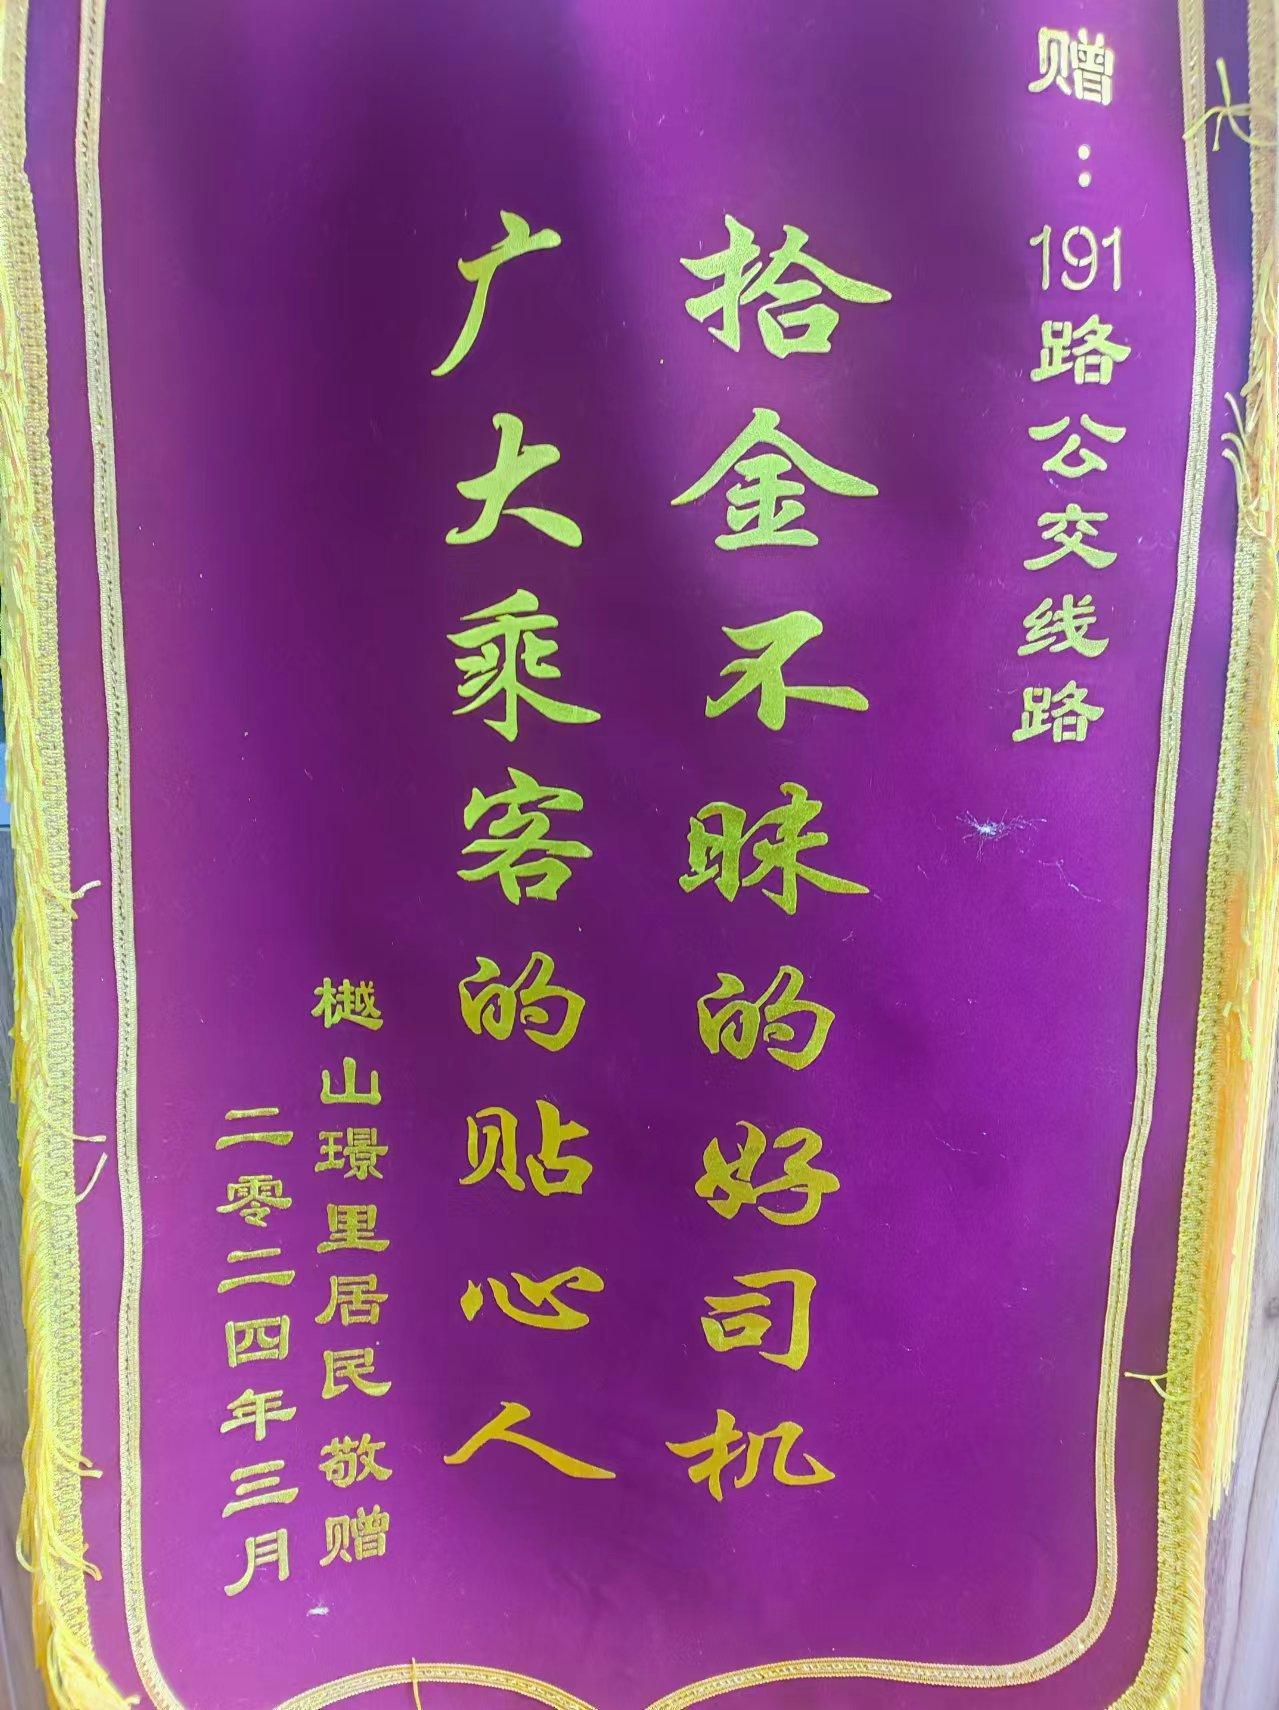 赠：191路公交线路
拾金不昧的好司机
广大乘客的贴心人
樾山璟里居民敬赠
二零二四年三月